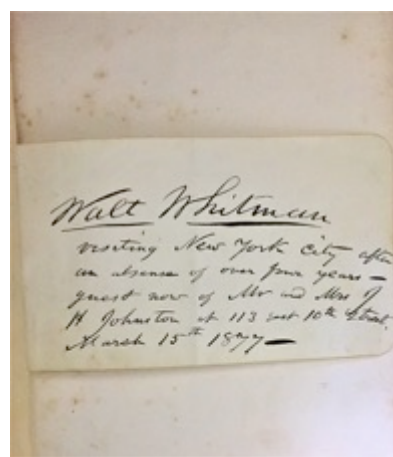 Walt Whitman
visiting New York city after
an absence of over four years —
guest now of Mr and Mrs J
H Johnston at 113 east 10th Street.
March 15th 1877 —